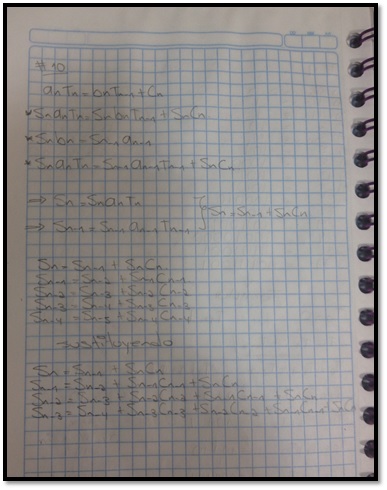 #10
anTn = bnTn-1 + Cn
* SnanTn = SnbnTn-1 + SnCn
* Snbn = Sn-1 an-1
* SnanTn = Sn-1 an-1 Tn-1 + SnCn
⇒ Sn = SnanTn
⇒ Sn-1 = Sn-1 an-1 Tn-1 } Sn = Sn-1 + SnCn
Sn = Sn-1 + SnCn
Sn-1 = Sn-2 + Sn-1Cn-1
Sn-2 = Sn-3 + Sn-2Cn-2
Sn-3 = Sn-4 + Sn-3Cn-3
Sn-4 = Sn-5 + Sn-4Cn-4
sustituyendo
Sn = Sn-1 + SnCn
Sn-1 = Sn-2 + Sn-1Cn-1 + SnCn
Sn-2 = Sn-3 + Sn-2Cn-2 + Sn-1Cn-1 + SnCn
Sn-3 = Sn-4 + Sn-3Cn-3 + Sn-2Cn-2 + Sn-1Cn-1 + SnCn